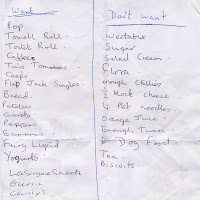 Want
Pop
Towell Roll
Toilet Roll.
Coffee
Tin Tomatoes.
Crisps
Flip Jack Singles.
Bread
Potatoes
Carrots
Peppers
Bananas
Fairy Liquid
Yogurts
Lasagne Sheets
Garlic
Chillys
Don't want
Weetabix
Sugar
Salad Cream.
Flora
enough chillies
½ block cheese
4 Pot noodles.
Orange Juice.
Enough Tuna
Dog Food
Tea
Biscuits